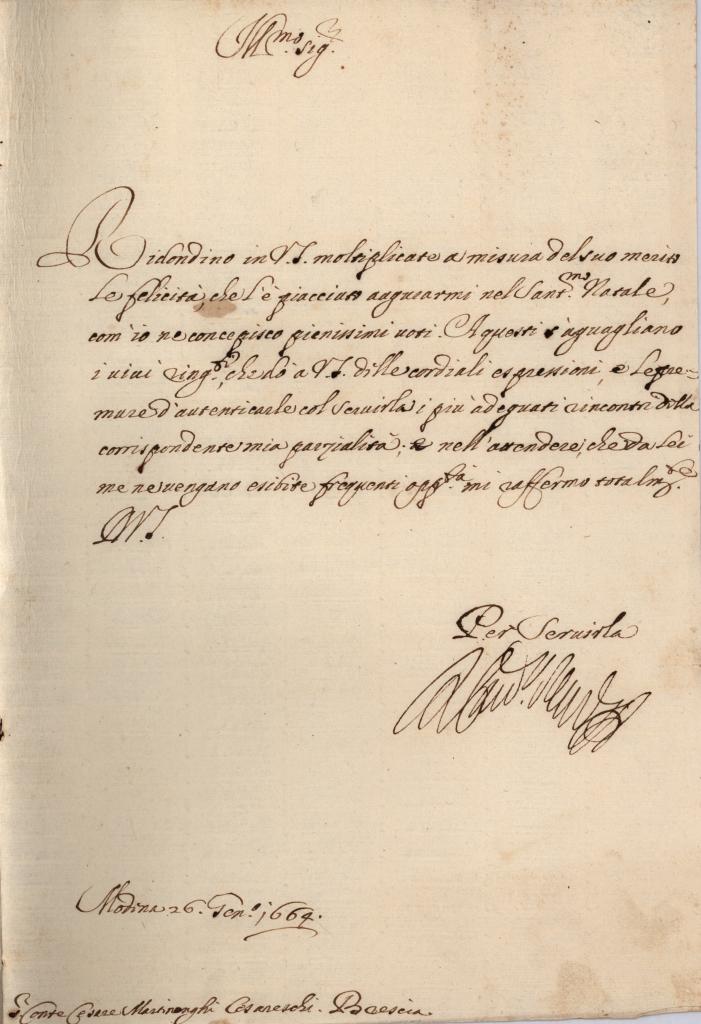 Ill.mo sig.r
Ridondino in V.S. moltiplicate a misura del suo merito
le felicità, che l'è piacciuto augurarmi nel Sant.mo Natale,
com' io ne concepisco pienissimi voti. A questi s'aguagliano
i vivi ring.ti, che dò a V.S. delle cordiali espressioni, e le pre-
mure d'autenticarle col servirla i più adequati rincontri della
corrispondente mia parzialità; e nell'attendere, che da Lei
me ne vengano esibite frequenti opp.tà mi raffermo totalm.te
D V.S.
Per Servirla
Modena 26. Gen.o 1664.
S.r Conte Cesare Martinenghi Cesareschi. Brescia.